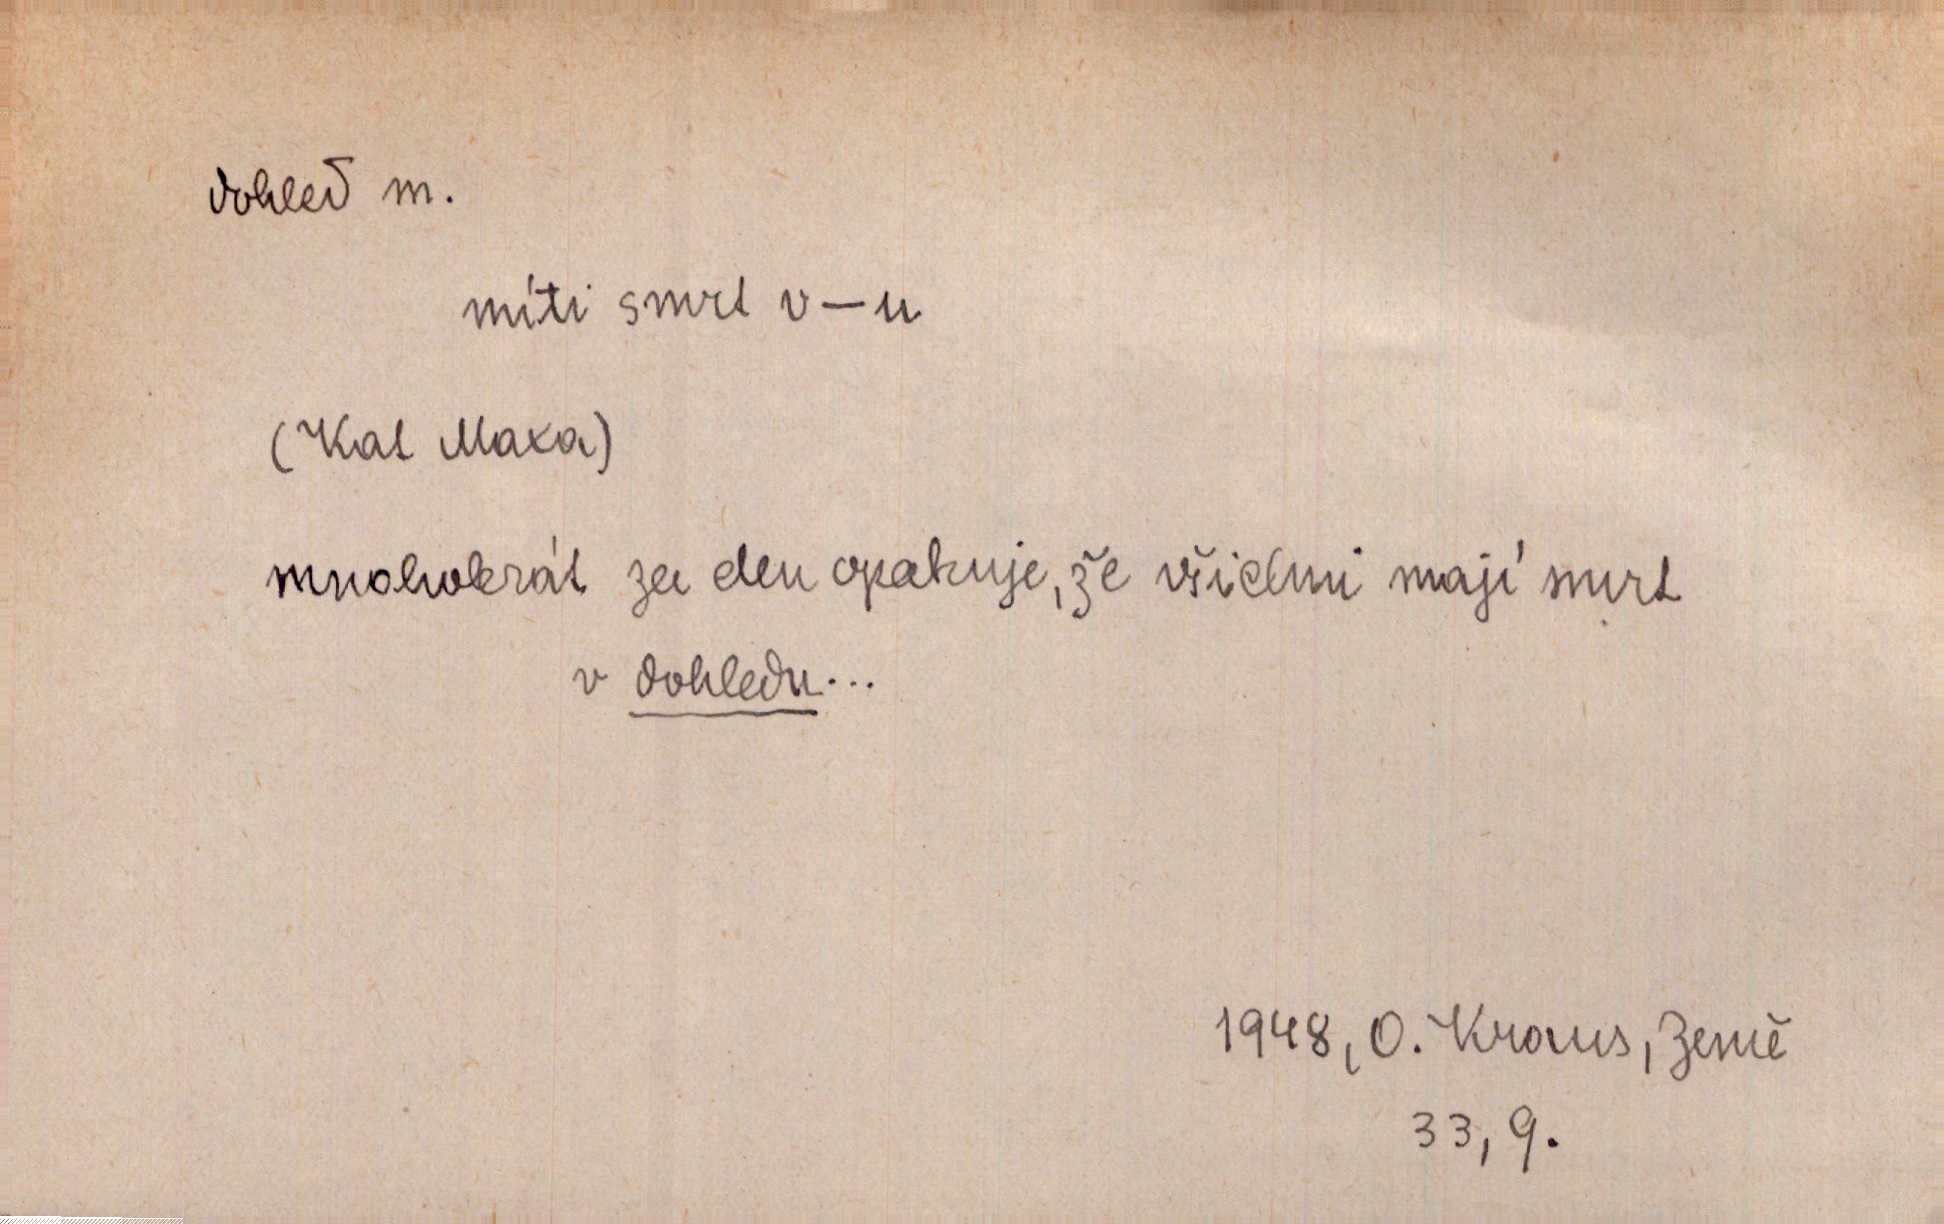 dohled m.
míti smrt v—u
(Kat Maxa)
mnohokrát za den opakuje, že všichni mají smrt
v dohledu...
1948, O. Kraus, Země
33, 9.